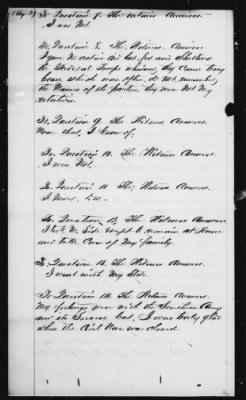 To Question 7. The Witness Answers.
I was Not.
To Question 8. The Witness Answers
I gave No active Aid but fed and Sheltered
the Federal Troops whenever they Came
was often, do Not remember
the Names of the parties. They were Not My
relatives.
To Question 9. The Witness Answers
None that I Know of.
To Question 10. The Witness Answers.
I was Not.
To Question 11 The Witness Answers.
I Never did.
To Question 12 The Witness Answers
I took No Side except to remain at Home
and take Care of My family.
To Question 13. The Witness Answers.
I went with My State.
To Question 14. The Witness Answers.
My feelings were with the Southern Army
but, I was truly glad
when the Civil War was closed.